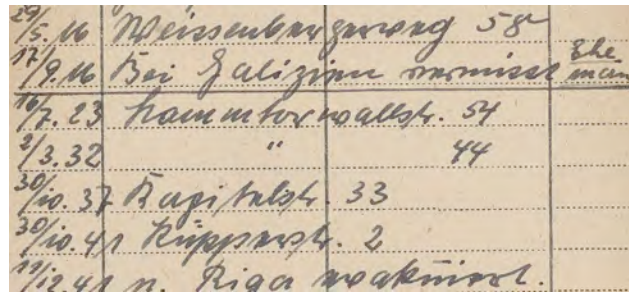 29/5.16 Weissenbergerweg 58
17/9.16 Bei Galizien vermisst Ehemann
16/7.23 Hammtorwallstr. 54
2/3.32 " 44
30/10.37 Kapitelstr. 33
30/10.41 Küpperstr. 2
11/12.41 n. Riga evakuiert.